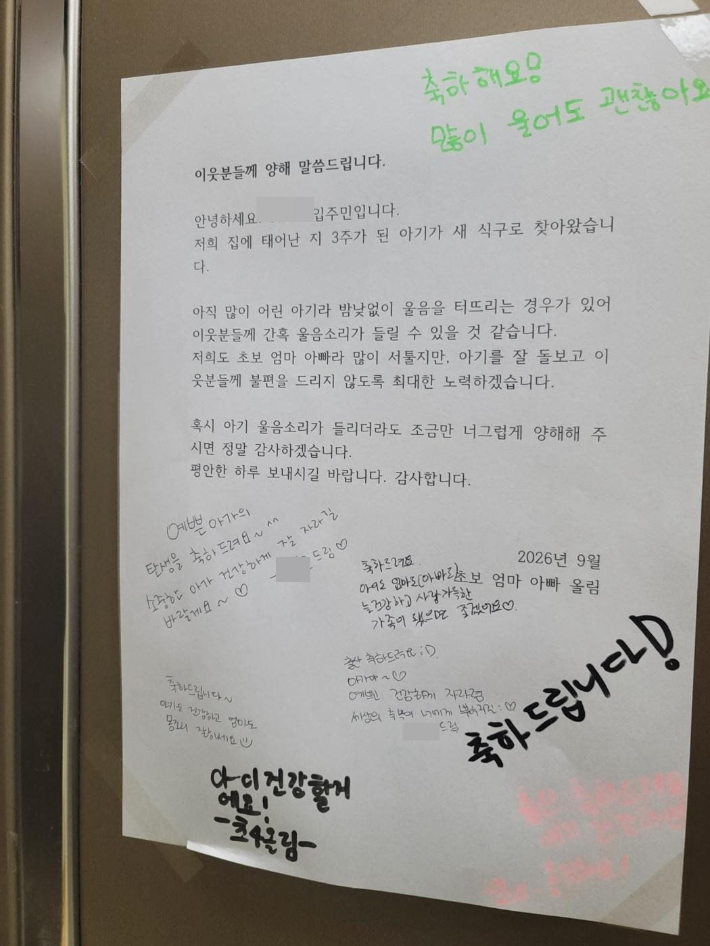 축하해요!
많이 울어도 괜찮아요
이웃분들께 양해 말씀드립니다.
안녕하세요. 입주민입니다.
저희 집에 태어난 지 3주가 된 아기가 새 식구로 찾아왔습니
다.
아직 많이 어린 아기라 밤낮없이 울음을 터뜨리는 경우가 있어
이웃분들께 간혹 울음소리가 들릴 수 있을 것 같습니다.
저희도 초보 엄마 아빠라 많이 서툴지만, 아기를 잘 돌보고 이
웃분들께 불편을 드리지 않도록 최대한 노력하겠습니다.
혹시 아기 울음소리가 들리더라도 조금만 너그럽게 양해해 주
시면 정말 감사하겠습니다.
평안한 하루 보내시길 바랍니다. 감사합니다.
2026년 9월
초보 엄마 아빠 올림
예쁜 아가의
탄생을 축하드려요~^^
소중한 아가 건강하게 잘 자라길
바랄게요~♡ - 드림♡
축하드려요
아이도 엄마도(아빠도)
늘 건강하고 사랑가득한
가족이 됐으면 좋겠어요♡
출산 축하드려요 :D
아가야~♡
예쁘고 건강하게 자라렴
세상의 축복이 너에게 :♡
드림
축하드립니다~
아기도 건강하고 엄마도
몸조리 잘하세요
축하드립니다!
아이 건강할거
에요!
-초4올림-
출산 축하드려요